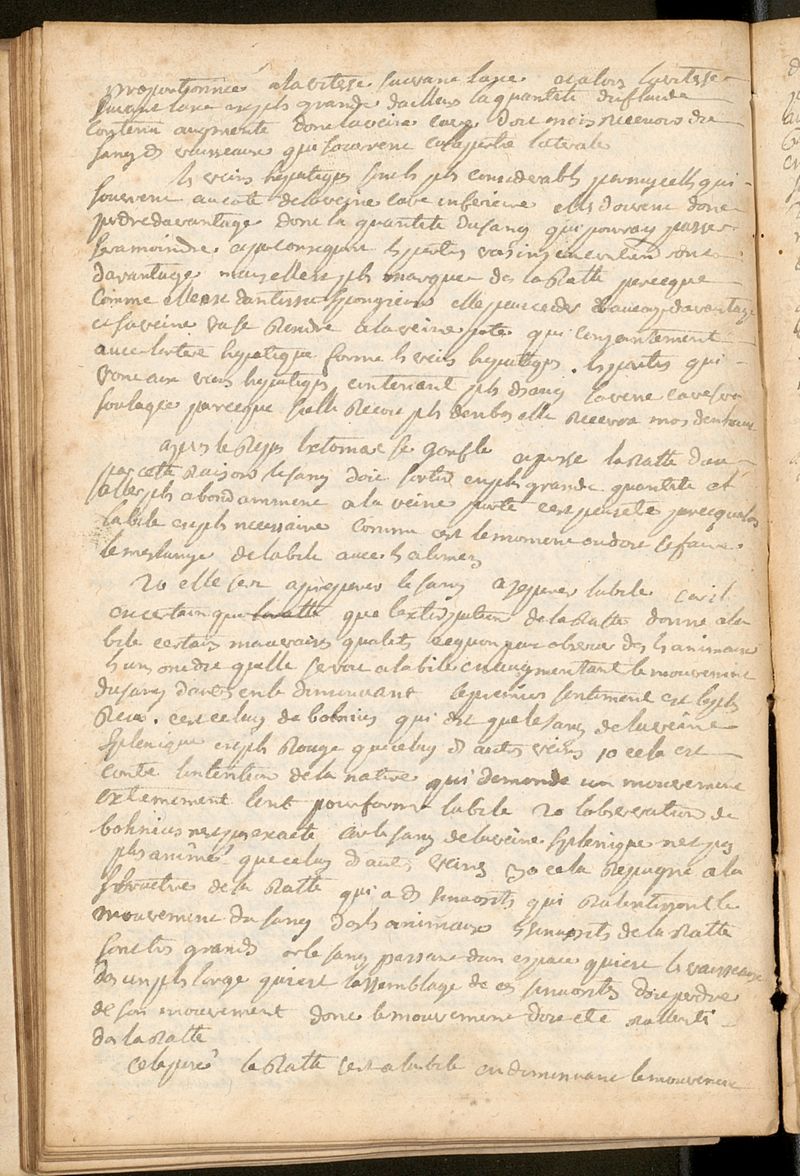 proportionné a la vitesse suivant l'axe et alors la vitesse
suivant l'axe est pls grande d'ailleurs la quantité du fluide
contenu augmente donc la veine cave doit mois recevoir du
sang ds vaisseaux qui souvrent a la partie laterale
ls veins hepatiqs sont ls pls considerabls parmy cells qui
souvrent a coté de la veine cave inferieure ells doivent donc
perdre davantage donc la quantité du sang qui pourra passer
sera moindre et par consequent ls parties voisins
davantage mais elle est pls marquée ds la ratte parceque
comme elle est d'un tissu spongieux elle peut ceder beaucoup davantage
et sa veine va se rendre a la veine porte qui conjointement
avec l'artere hepatique forme ls veins hepatiqs. ls parties qui
vont aux veins hepatiqs contenant pls de sang la veine cave sera
soulagée parceque si elle recoit pls d'en bas elle recevra mois d'en haut
apres le repas l'estomac se gonfle et presse la ratte
par cette raison le sang doit sortir en pls grande quantité et
aller pls abondamment a la veine porte c'est parceque
la bile est pls necessaire comme c'est le moment ou doit se faire
le meslange de la bile avec ls alimens
2o elle sert a preparer le sang a separer la bile car il
est certain que la ratte que l'extirpation de la ratte donne a la
bile certais mauvaises qualités ce qu'on peut observer ds ls animaux
ls uns ont dit quelle servoit a la bile en augmentant le mouvement
du sang d'autres en le diminuant le premier sentiment est le pls
receu. c'est celuy de bohnius qui dit que le sang de la veine
splenique est pls rouge que celuy ds autrs veins 1o cela est
contre l'intention de la nature qui demande un mouvement
extremement lent pour former la bile 2o l'observation de
bohnius nest pas exacte car le sang de la veine splenique nest pas
pls animé que celuy ds autrs veins 3o cela repugne a la
structure de la ratte qui a ds sinuosits qui ralentissent le
mouvement du sang ds ls animaux ls sinuosits de la ratte
sont trs grands or le sang passant d'un espace qui est ls vaisseaux
ds un pls large qui est l'assemblage de ces sinuosits doit perdre
de son mouvement donc le mouvement doit etre rallenti
ds la ratte
cela posé la ratte sert a la bile en diminuant le mouvement